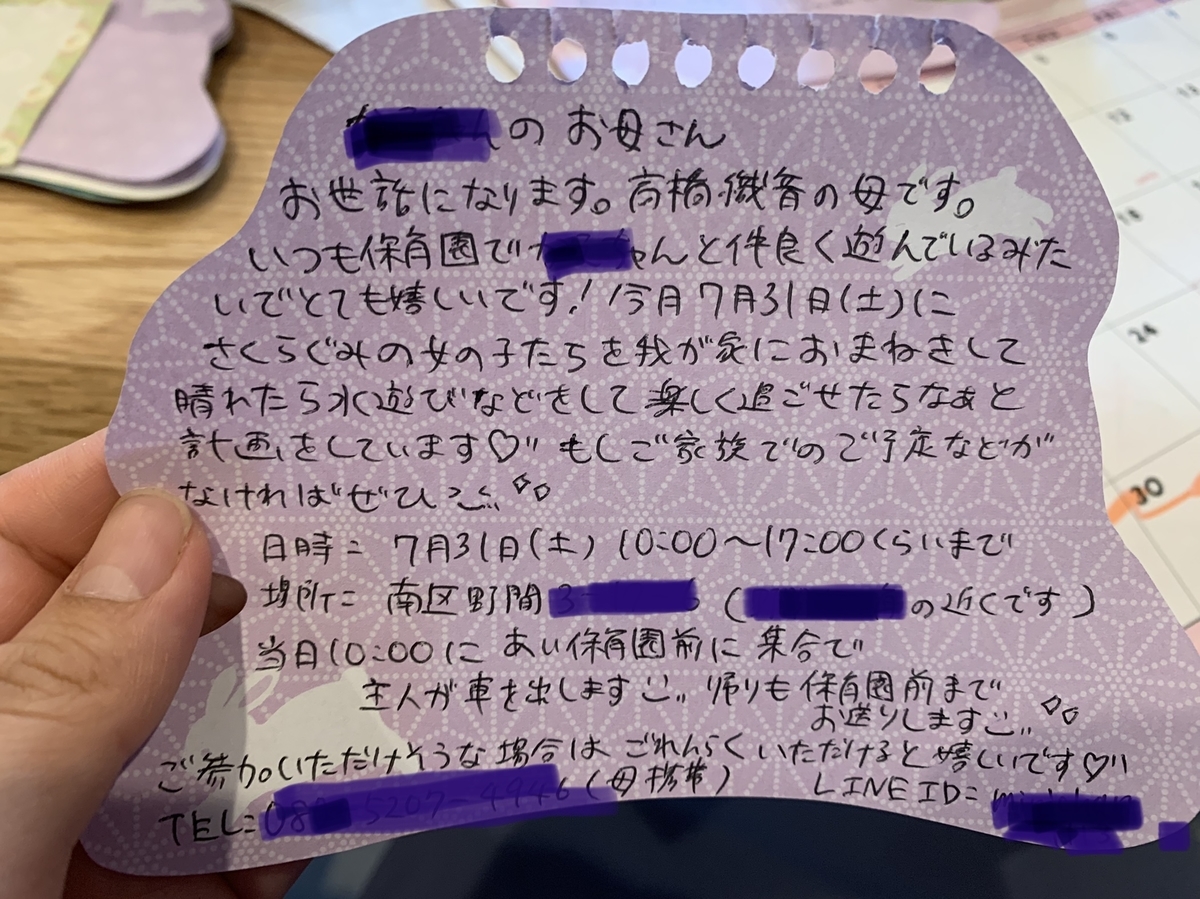 のお母さん
お世話になります。高橋 の母です。
いつも保育園で ちゃんと仲良く遊んでいるみた
いでとても嬉しいです！今月7月31日(土)に
さくらぐみの女の子たちを我が家におまねきして
晴れたら水遊びなどをして楽しく過ごせたらなぁと
計画をしています♡ もしご家族でのご予定などが
なければぜひ
日時= 7月31日(土) 10:00〜17:00くらいまで
場所= 南区野間 ( の近くです)
当日10:00に あい保育園前に集合で
主人が車を出します 帰りも保育園前まで
お送りします
ご参加いただけそうな場合は ごれんらくいただけると嬉しいです♡
TEL= (母携帯) LINE ID=
12
24
30